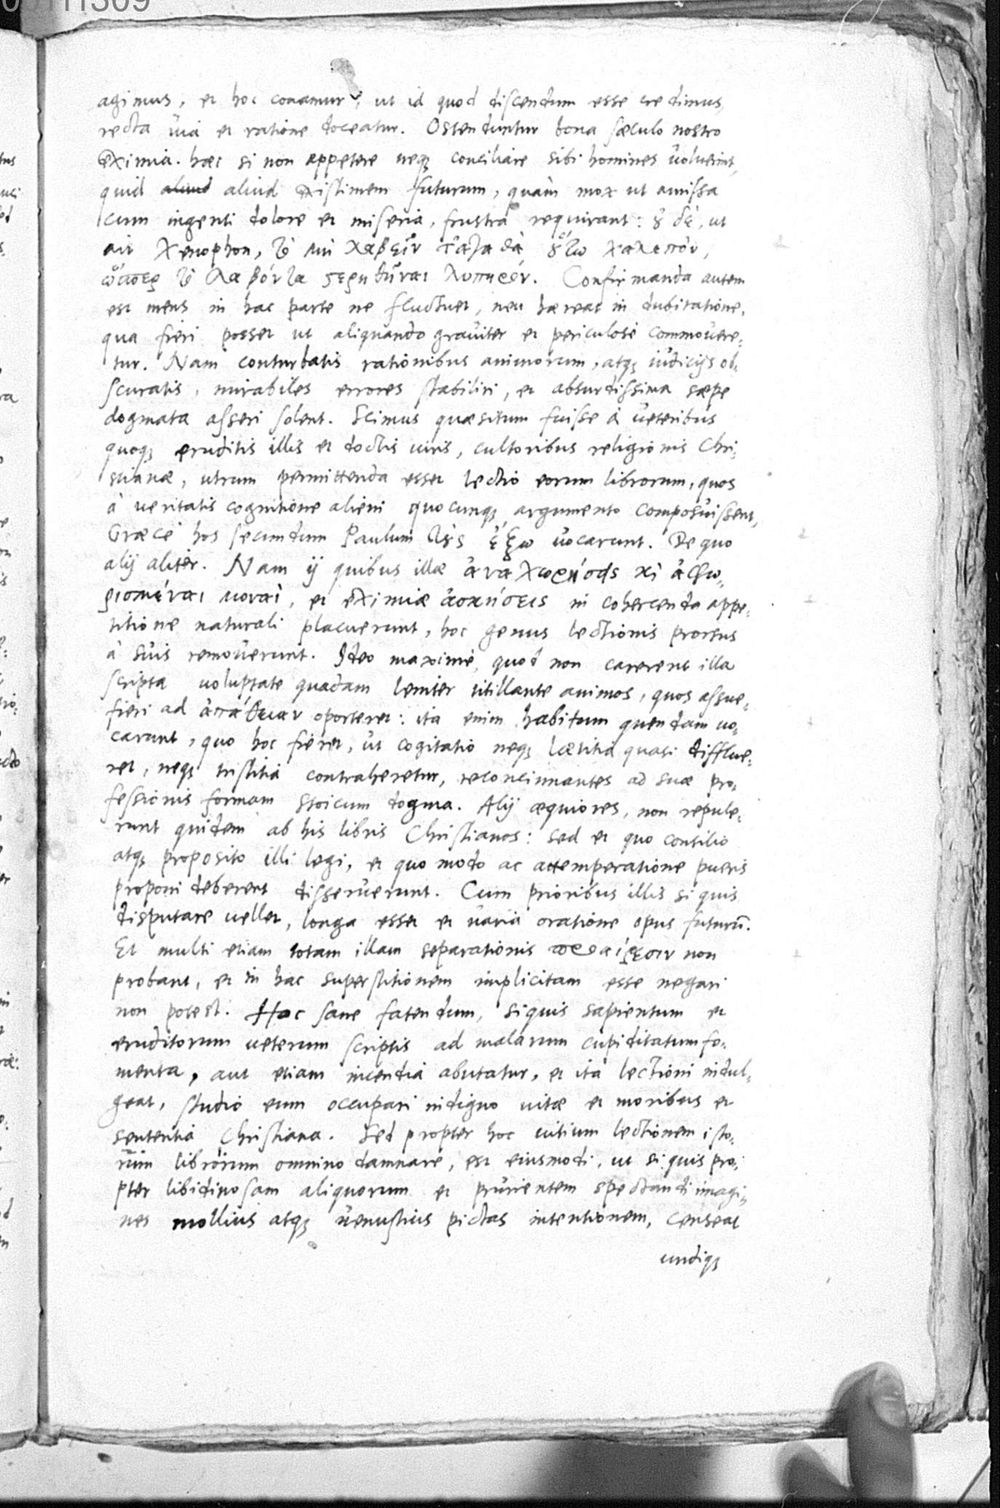 agimus, et hoc conamur, ut id quod discendum esse credimus,
recta via et ratione doceatur. Ostenduntur bona sæculo nostro
eximia. hæc si non appetere neq; conciliare sibi homines voluerint,
quid aliud aliud existimem futurum, quàm mox ut amissa
cum ingenti dolore et miseria, frustrà requirant: ut
ait Xenophon, τὸ μὴ λαβεῖν τἀγαθὰ οὕτω χαλεπὸν,
ὥσπερ τὸ λαβόντα στερηθῆναι λυπηρόν. Confirmanda autem
est mens in hac parte ne fluctuet, neu hæreat in dubitatione,
qua fieri posset ut aliquando graviter et periculosè commovere-
tur. Nam conturbatis rationibus animorum, atq; iudicijs ob-
scuratis, mirabiles errores stabiliri, et absurdissima sæpe
dogmata asseri solent. Scimus quæsitum fuisse à veteribus
quoq; eruditis illis et doctis viris, cultoribus religionis Chri-
stianæ, utrum permittenda esset lectio eorum librorum, quos
à veritatis cognitione alieni quocunq; argumento composuissent,
Græcè hos secundum Paulum τοὺς ἔξω vocarunt. De quo
alij aliter. Nam ij quibus illæ ἀναχωρήσεις καὶ ἀφω-
ρισμέναι μοναὶ, et eximiæ ἀσκήσεις in cohercenda appe-
titione naturali placuerunt, hoc genus lectionis prorsus
à suis removerunt. Ideo maximè, quod non carerent illa
scripta voluptate quadam leniter titillante animos, quos assue-
fieri ad ἀπάθειαν oporteret: ita enim habitum quendam vo-
carunt, quo hoc fieret, ut cogitatio neq; lætitia quasi difflue-
ret, neq; tristitia contraheretur, reconcinnantes ad suæ pro-
fessionis formam Stoicum dogma. Alij æquiores, non repule-
runt quidem ab his libris Christianos: sed et quo consilio
atq; proposito illi legi, et quo modo ac attemperatione pueris
proponi deberent disseruerunt. Cum prioribus illis si quis
disputare vellet, longa esset et varia oratione opus futurum̄.
Et multi etiam totam illam separationis προαίρεσιν non
probant, et in hac superstitionem implicitam esse negari
non potest. Hoc sane fatendum, siquis sapientum et
eruditorum veterum scriptis ad malarum cupiditatum fo-
menta, aut etiam incendia abutatur, et ita lectioni indul-
geat, studio eum occupari indigno vitæ et moribus et
sententia Christiana. Sed propter hoc vitium lectionem isto-
rum librorum omnino damnare, est eiusmodi, ut si quis pro-
pter libidinosam aliquorum et prurientem spectandi imagi-
nes mollius atq; venustius pictas intentionem, censeat
undiq;